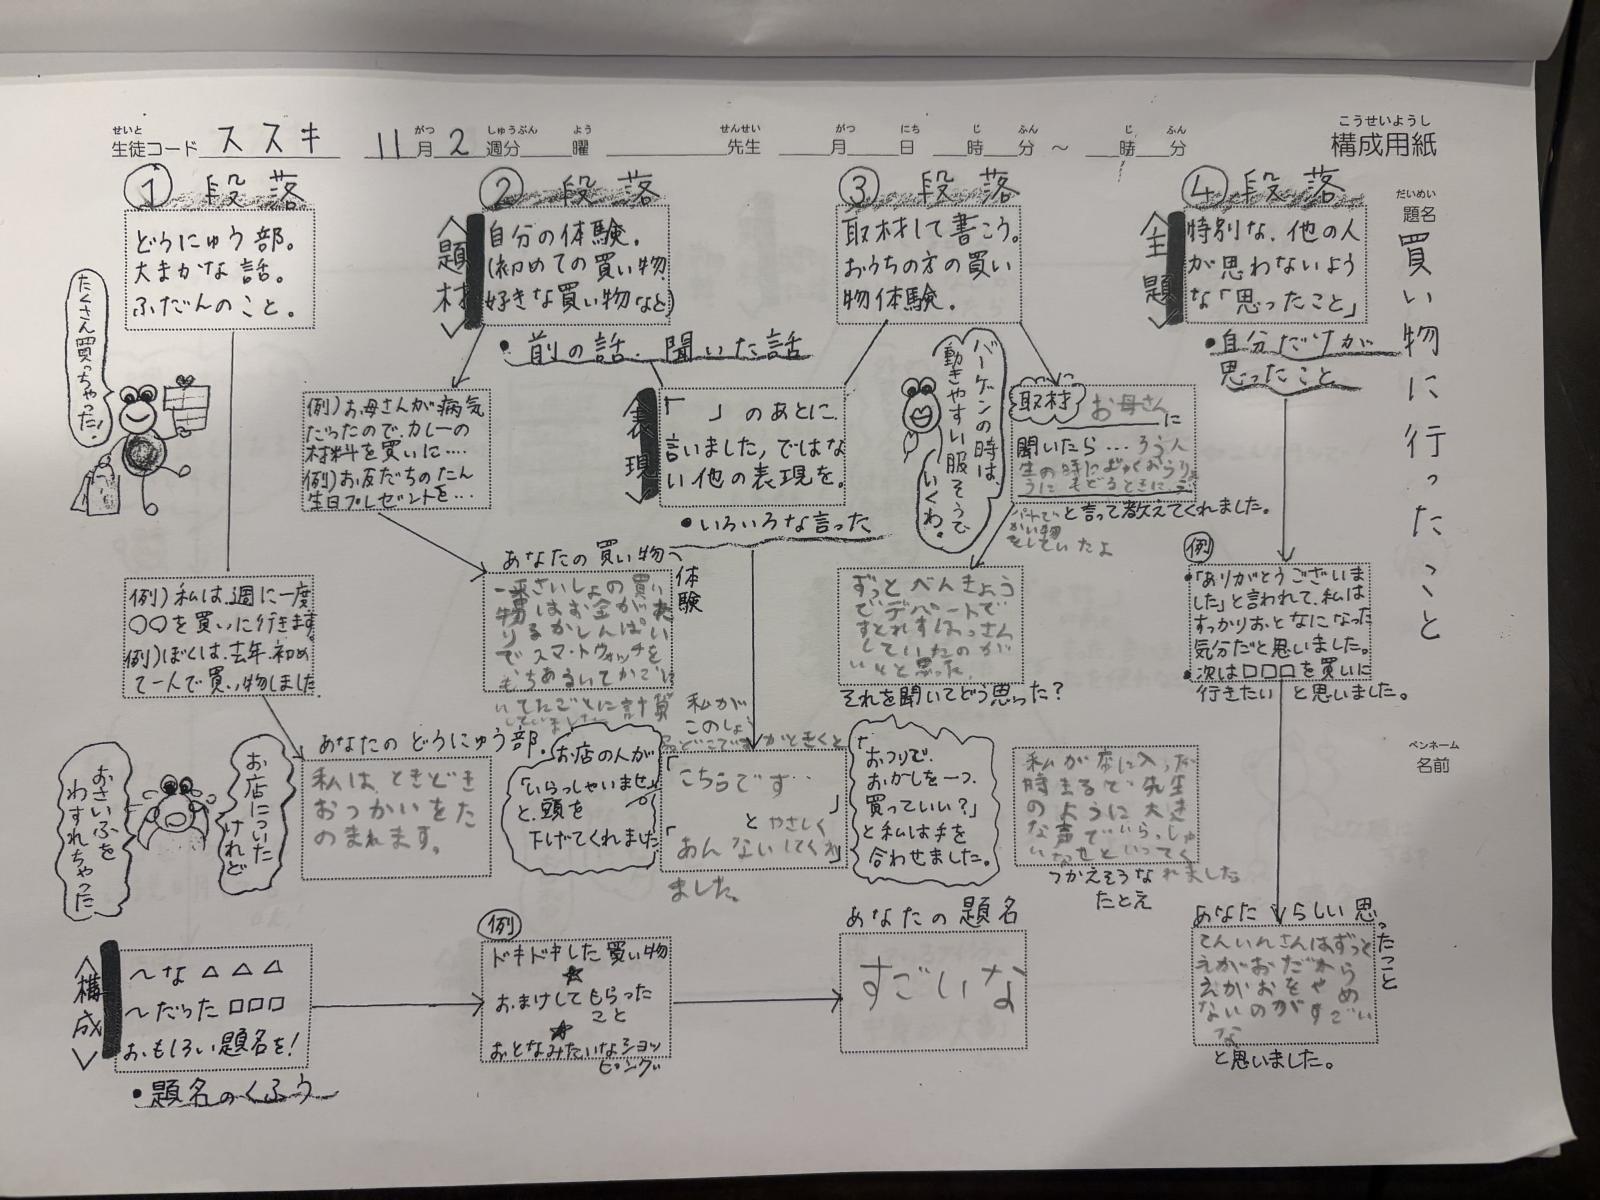 せいと
生徒コード ススキ 11月2週分 曜 先生 月 日 時 分 ～ 時 分
がつ しゅうぶん よう せんせい がつ にち じ ふん じ ふん
こうせいようし
構成用紙
だいめい
題名
買い物に行ったこと
ペンネーム
名前
① 段落
どうにゅう部。
大まかな話。
ふだんのこと。
たくさん買っちゃった!
例)私は、週に一度
〇〇を買いに行きます。
例)ぼくは、去年、初め
て一人で買い物しました
あなたの どうにゅう部.
私は、ときどき
おつかいをた
のまれます。
お店についた
けれど
おさいふを
わすれちゃった
② 段落
〈題材〉
自分の体験.
(初めての買い物、
好きな買い物など)
・前の話.聞いた話
例)お母さんが病気
だったので、カレーの
材料を買いに....
例)お友だちのたん
生日プレゼントを...
あなたの買い物
体験
一番さいしょの買い
物はお金が
るかしんぱい
でスマートウォッチを
もちあるいてかごに
いてたごとに計算
していました
〈表現〉
「 」のあとに、
言いました,ではな
い他の表現を。
・いろいろな言った
お店の人が
「いらっしゃいませ。」
と、頭を
下げてくれました
私が
このしょ
どこですかときくと
「こちらです..
」
とやさしく
あんないしてくれ
ました。
③ 段落
取材して書こう。
おうちの方の買い
物体験.
バーゲンの時は、
動きやすい服そうで
いくわ.
取材 お母さんに
聞いたら...ろう人
生の時に
うにもどるときに
かい物
をしていたよ
と言って教えてくれました。
ずっとべんきょう
でデパートで
すとれすはっさん
していたのが
いいと思った.
それを聞いてどう思った?
「おつりで、
おかしを一つ、
買っていい?」
と私は手を
合わせました。
私が店に入った
時まるで先生
のように大き
な声でいらっしゃ
いませといってく
れました
つかえそうな
たとえ
④ 段落
〈主題〉
特別な、他の人
が思わないよう
な「思ったこと」
・自分だけが
思ったこと
例
・「ありがとうございま
した」と言われて、私は
すっかりおとなになった
気分だと思いました。
・次は□□□を買いに
行きたい と思いました。
あなたらしい思ったこと
てんいんさんはずっと
えがおだから
えがおをやめ
ないのがすごい
な
と思いました。
〈構成〉
～な△△△
～だった□□□
おもしろい題名を!
・題名のくふう
例
ドキドキした買い物
☆
おまけしてもらった
こと
☆
おとなみたいなショッ
ピング
あなたの題名
すごいな